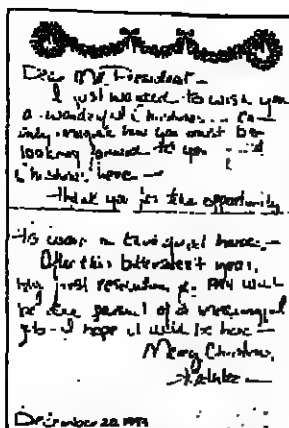 Dear Mr. President —
I just wanted to wish you
a wonderful Christmas
only imagine how you must be
looking forward to you
Christmas here —
Thank you for the opportunity
to work in this great house. —
After this bittersweet year,
my first resolution for 1994 will
be the pursuit of a meaningful
job — I hope it will be here —
Merry Christmas,
December 20, 1993